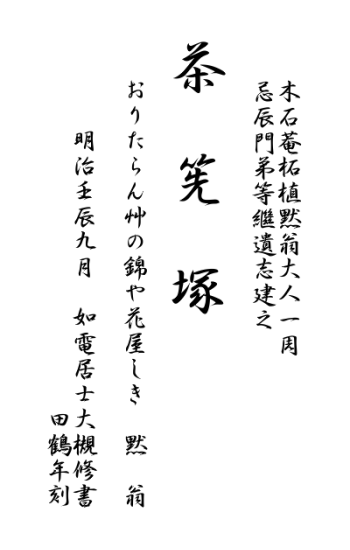 木石菴柘植黙翁大人一周
忌辰門弟等継遺志建之
茶筅塚
おりたらん艸の錦や花屋しき 黙翁
明治壬辰九月 如電居士大槻修書
田鶴年刻